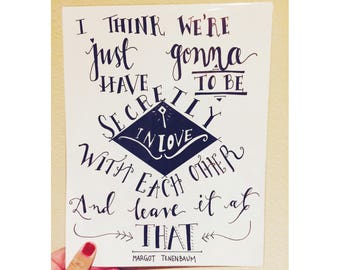 I THINK WE'RE
just gonna
HAVE TO BE
SECRETLY
IN LOVE
WITH EACH OTHER
And leave it at
THAT
MARGOT TENENBAUM